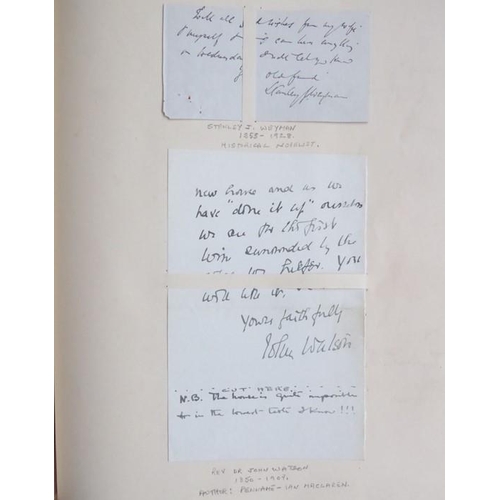 With all wishes from my wife
& myself
on Wednesday
old friend
Stanley J. Weyman
STANLEY J. WEYMAN
1855 - 1928.
HISTORICAL NOVELIST.
new house and as we
have "done it up" ourselves
we are for the first
time surrounded by the
You
Yours faithfully
John Watson
CUT HERE
N.B. The house is quite impossible
& in the lowest taste I know!!!
REV DR JOHN WATSON
1850 - 1907.
AUTHOR: PENNAME - IAN MACLAREN.